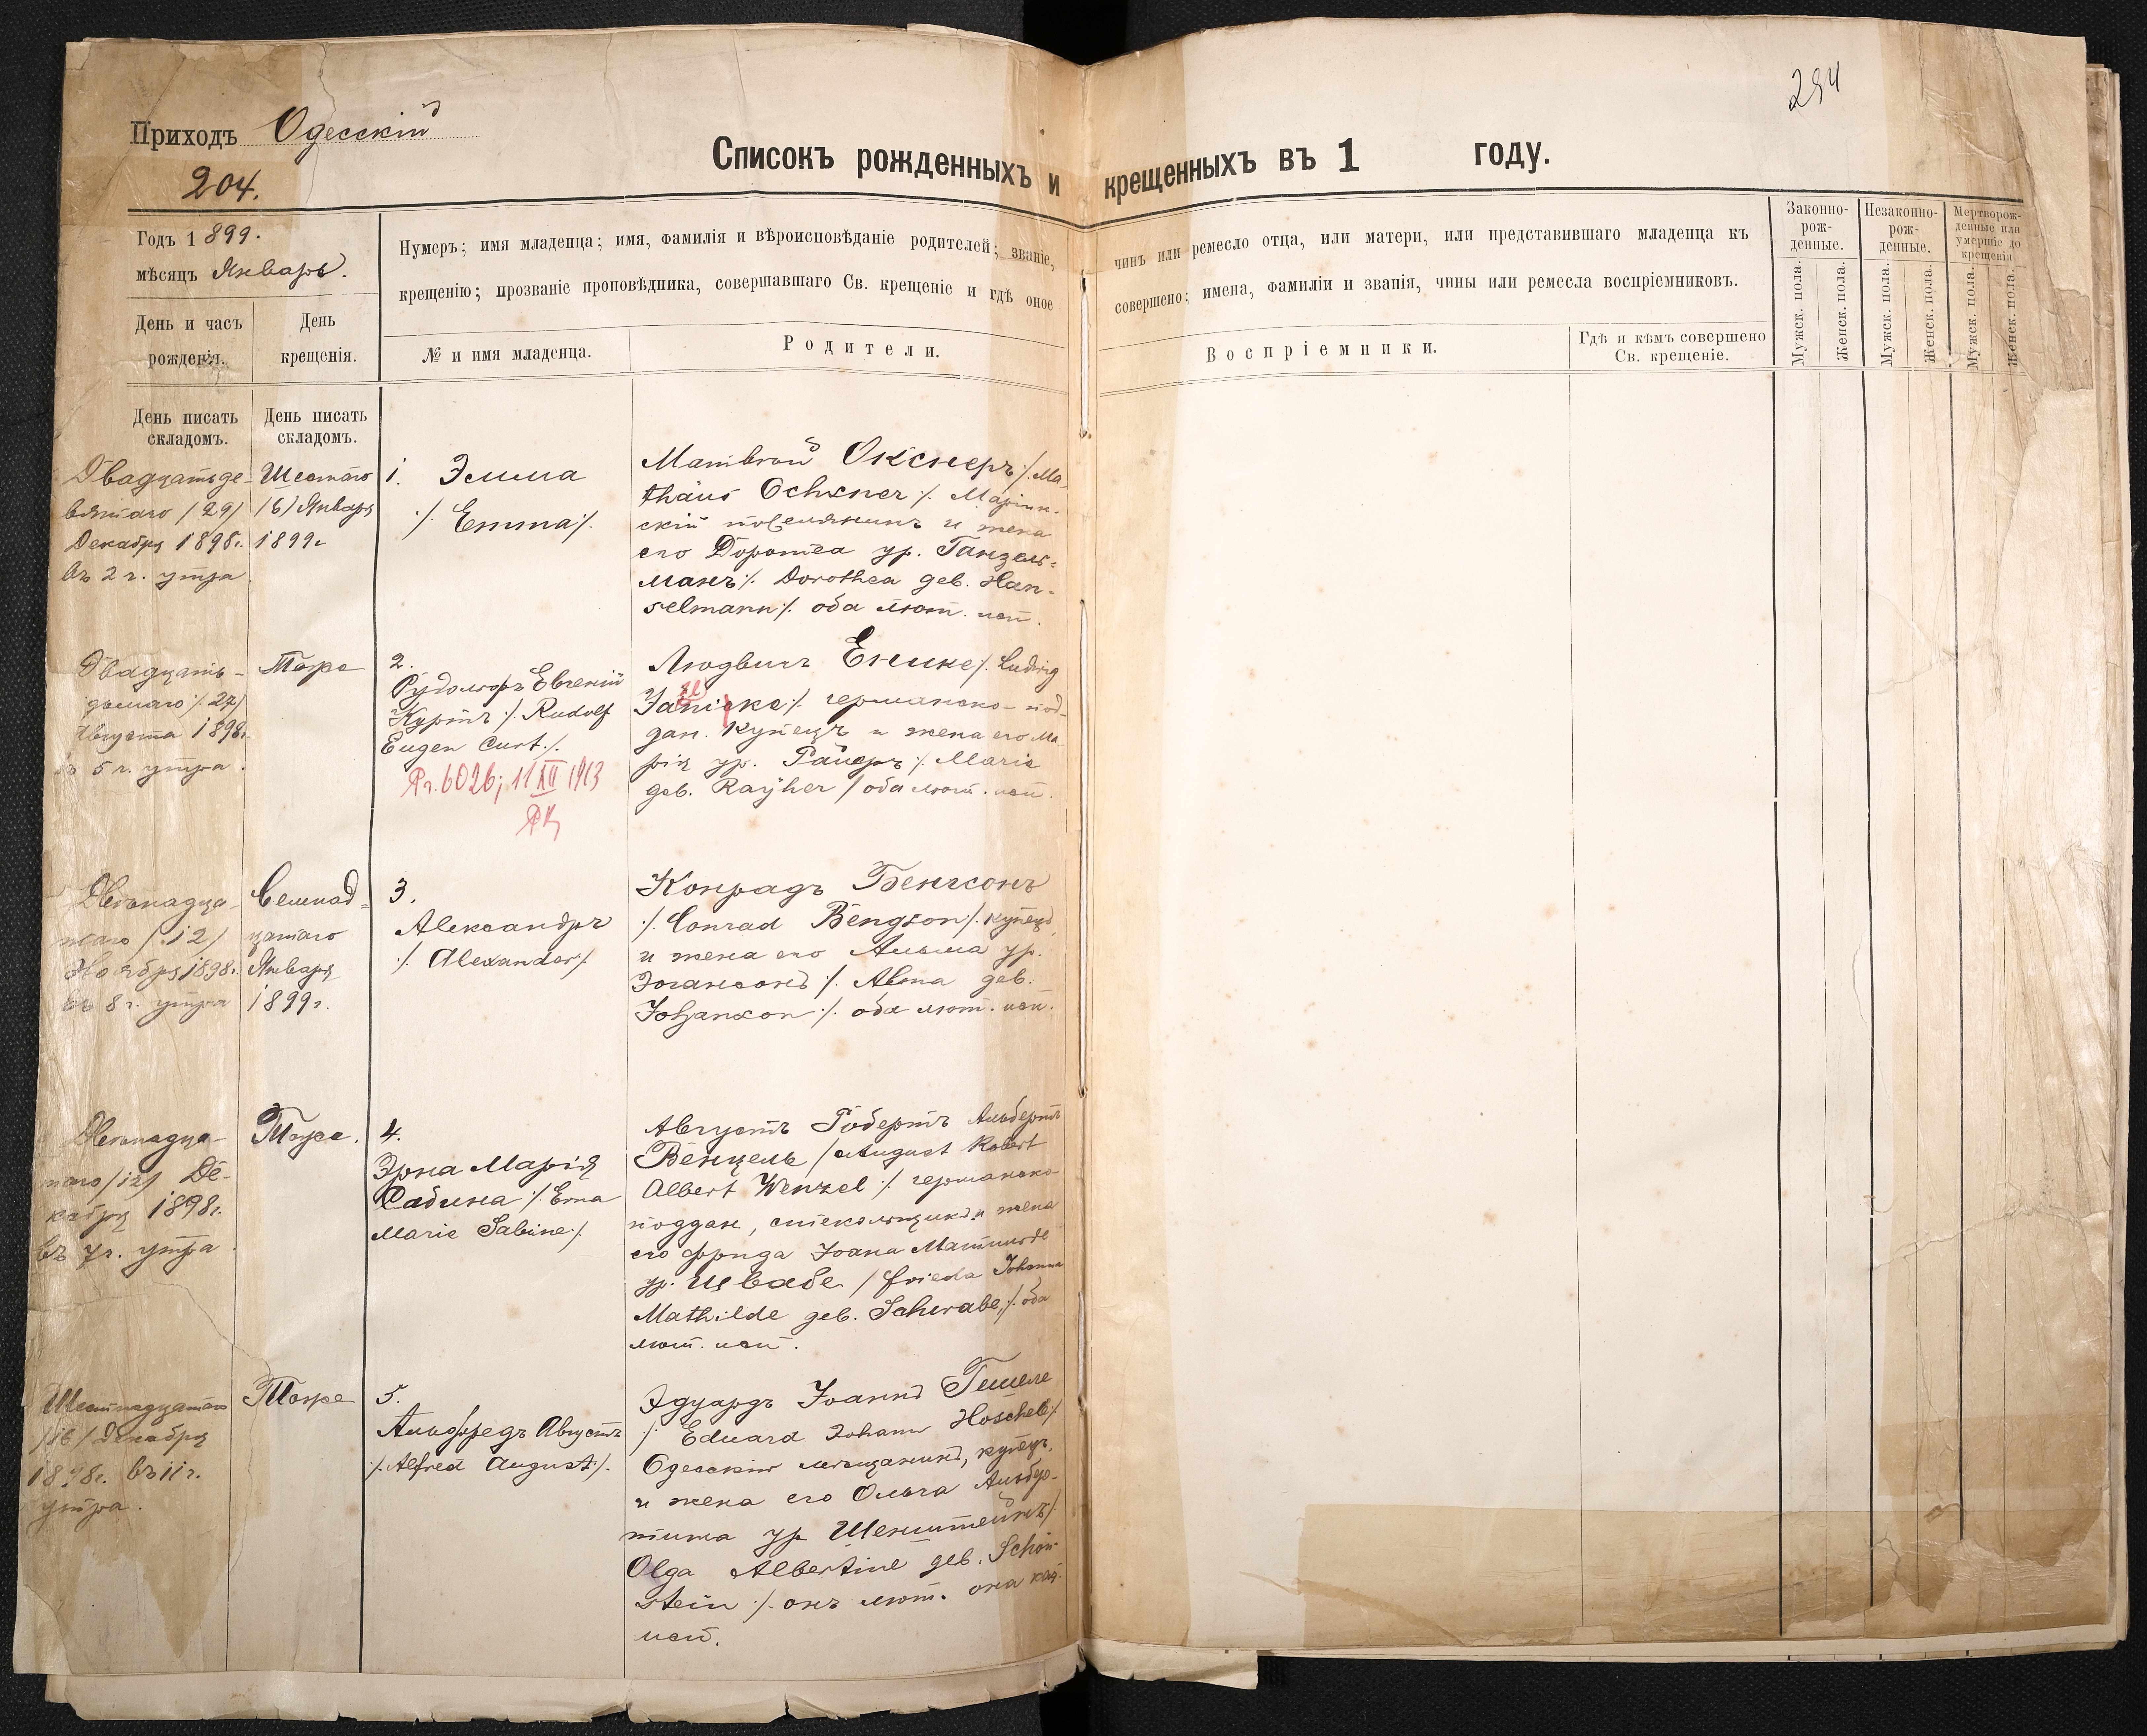 294
Приходъ Одесскій
204.
Списокъ рожденныхъ и крещенныхъ въ 1 году.
Годъ 1899.
мѣсяцъ Январь.
Нумеръ; имя младенца; имя, фамилія и вѣроисповѣданіе родителей; званіе, чинъ или ремесло отца, или матери, или представившаго младенца къ
крещенію; прозваніе проповѣдника, совершавшаго Св. крещеніе и гдѣ оное совершено; имена, фамиліи и званія, чины или ремесла воспріемниковъ.
Законно-
рож-
денные.
Незаконно-
рож-
денные.
Мертворож-
денные или
умершіе до
крещенія.
Мужск. пола.
Женск. пола.
Мужск. пола.
Женск. пола.
Мужск. пола.
Женск. пола.
День и часъ
рожденія.
День
крещенія.
№ и имя младенца.
Родители.
Воспріемники.
Гдѣ и кѣмъ совершено
Св. крещеніе.
День писать
складомъ.
День писать
складомъ.
Двадцать де-
вятаго /29/
Декабря 1898г.
въ 2 ч. утра
Шестаго
/6/ Января
1899г
1. Эмма
/. Emma /.
Матвѣй Окснеръ /. Ma-
thäus Ochsner /. Маріин-
скій поселянинъ и жена
его Доротеа ур. Ганзель-
манъ /. Dorothea geb. Han-
selmann /. оба лют. исп.
Двадцать-
дьмаго /. 27/
Августа 1898г.
въ 5 ч. утра.
Тоже
2.
Рудольфъ Евгеній
Куртъ /. Rudolf
Eugen Curt. /.
6026; 11 XII 1913
Людвигъ Енике /. Ludwig
Jänicke /. германско-под-
дан. купецъ и жена его Ма-
рія ур. Райеръ /. Marie
geb. Rayher / оба лют. исп.
Двѣнадца-
таго /. 12/
Ноября 1898г.
въ 8 ч. утра
Семнад-
цатаго
Января
1899г.
3.
Александръ
/. Alexander /.
Конрадъ Бенгсонъ
/. Conrad Bengson /. купецъ,
и жена его Альма ур.
Іогансонъ /. Alma geb.
Johanson /. оба лют. исп.
Двѣнадца-
таго /12/ Де-
кабря 1898г.
въ 7ч. утра
Тоже.
4.
Эрна Марія
Сабина /. Erna
Marie Sabine /.
Августъ Робертъ Альбертъ
Венцель / August Robert
Albert Wenzel /. германско-
поддан, стекольщикъ и жена
его Фрида Іоана Матильде
ур. Швабе / Frieda Johanna
Mathilde geb. Schwabe, /. оба
лют. исп.
Шестнадцатаго
/16/ Декабря
1898г. въ 11ч.
утра.
Тоже
5.
Альфредъ Августъ
/. Alfred August /.
Эдуардъ Іоаннъ Гешеле
/. Eduard Johann Höschele /.
Одесскій мѣщанинъ, купецъ,
и жена его Ольга Альбер-
тина ур Шенштейнъ /.
Olga Albertine geb. Schön-
stein /. онъ лют. она
исп.